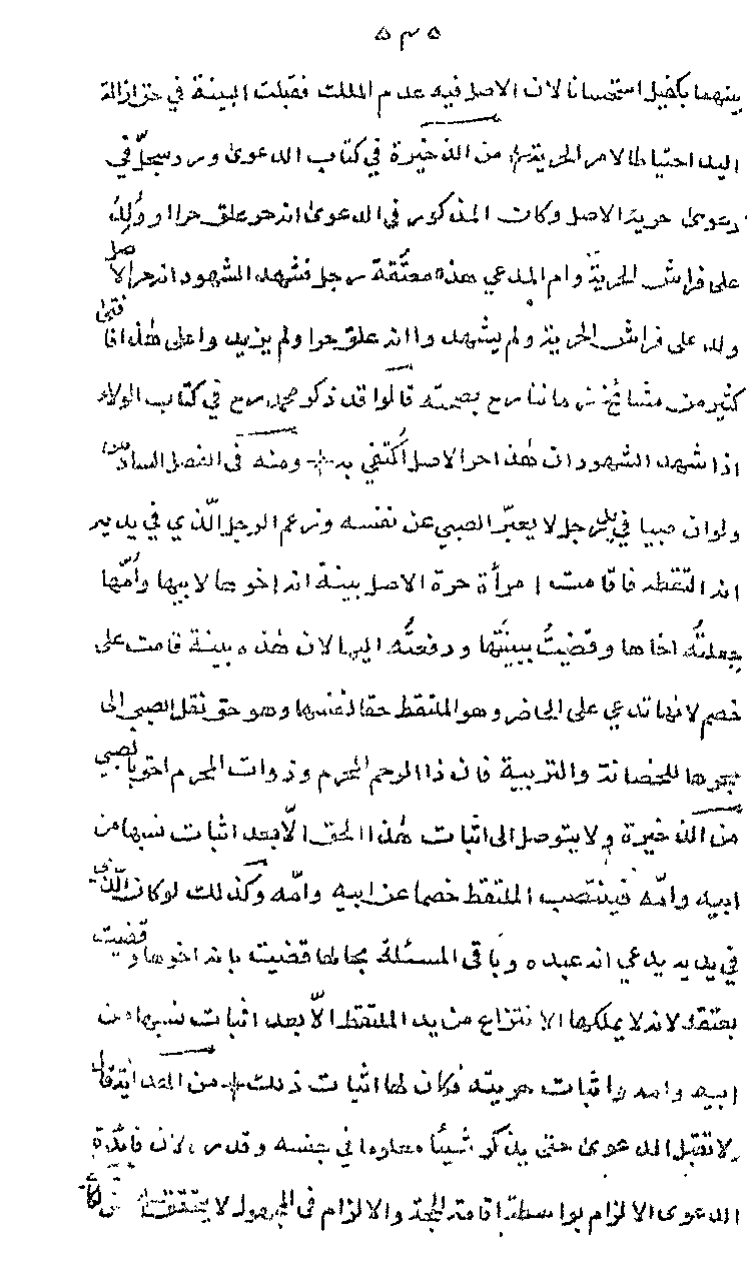 ٥٣٥
بينهما بكفيل استحسانا لان الاصل فيه عدم الملك فقبلت البينة في حق ازالة
اليد احتياطا لامر الحرية من الذخيرة في كتاب الدعوى ورد سجل في
دعوى حرية الاصل وكان المذكور في الدعوى انه حر علق حرا وولد
على فراش الحرية وام المدعي هذه معتقة رجل فشهد الشهود انه حر الاصل
ولد على فراش الحرية ولم يشهدوا انه علق حرا ولم يزيدوا على هذا افتى
كثير من مشائخ زماننا رح بصحته قالوا قد ذكر محمد رح في كتاب الولاء
اذا شهد الشهود ان هذا حر الاصل اكتفي به ومنه في الفصل السادس
ولو ان صبيا في يد رجل لا يعبر الصبي عن نفسه وزعم الرجل الذي في يديه
انه التقطه فاقامت امرأة حرة الاصل بينة انه اخوها لابيها وامها
جعلته اخاها وقضيت ببينتها ودفعته اليها لان هذه بينة قامت على
خصم لانها تدعي على الحاضر وهو الملتقط حقا لنفسها وهو حق نقل الصبي الى
حجرها للحضانة والتربية فان ذا الرحم المحرم وذوات المحرم احق بالصبي
من الذخيرة ولا يتوصل الى اثبات هذا الحق الا بعد اثبات نسبها من
ابيه وامه فينتصب الملتقط خصما عن ابيه وامه وكذلك لو كان الذي
في يديه يدعي انه عبده وباقي المسئلة بحالها قضيت بانه اخوها وقضيت
بعتقه لانه لا يملكها الانتزاع من يد الملتقط الا بعد اثبات نسبها من
ابيه وامه واثبات حريته فكان لها اثبات ذلك من الهداية قال
ولا تقبل الدعوى حتى يذكر شيئا معلوما في جنسه وقدره لان فائدة
الدعوى الالزام بواسطة اقامة الحجة والالزام في المجهول لا يتحقق